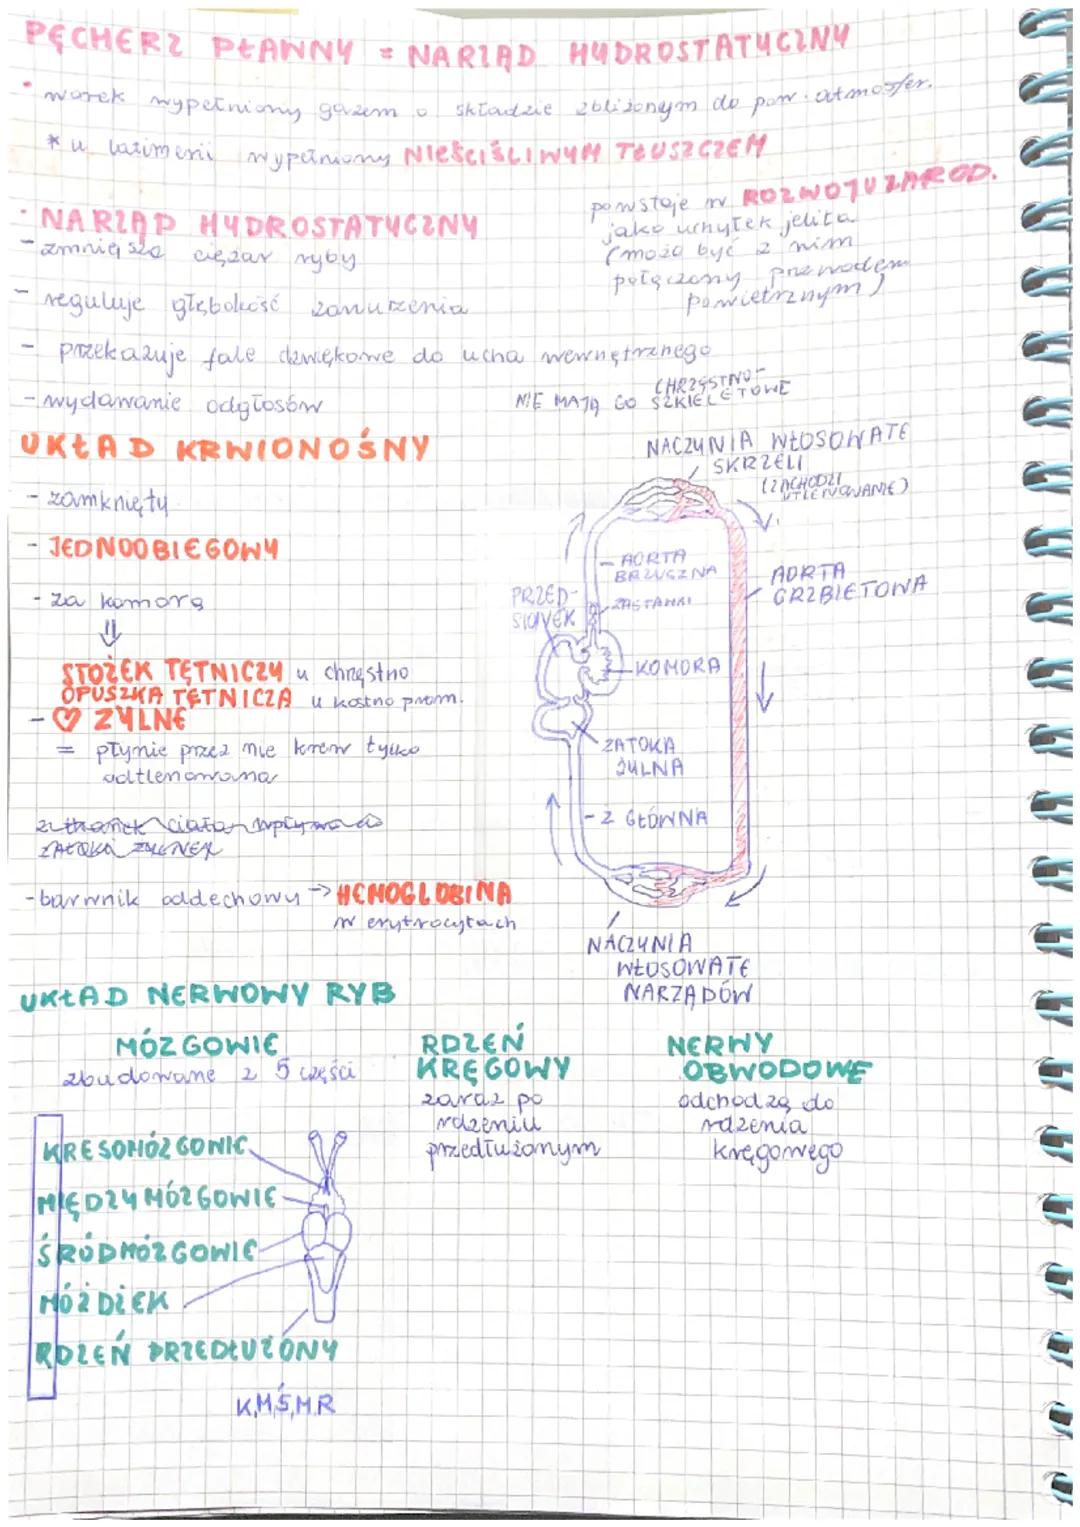 PĘCHERZ PŁAWNY = NARZĄD HYDROSTATYCZNY
• worek wypełniony gazem o składzie zbliżonym do pow. atmosfer.
* u latimerii wypełniony NIEŚCIŚLIWYM TŁUSZCZEM
powstaje w ROZWOJU ZAROD.
jako uchyłek jelita
(może być z nim
połączony przewodem
powietrznym)
• NARZĄD HYDROSTATYCZNY
- zmniejsza ciężar ryby
- reguluje głębokość zanurzenia
- przekazuje fale dźwiękowe do ucha wewnętrznego
- wydawanie odgłosów
NIE MAJĄ GO CHRZĘSTNO-
SZKIELETOWE
UKŁAD KRWIONOŚNY
- zamknięty
- JEDNOOBIEGOWY
- za komorą
⇓
STOŻEK TĘTNICZY u chrzęstno
OPUSZKA TĘTNICZA u kostno prom.
- ♡ ZYLNE
= płynie przez nie krew tylko
odtlenowana
z tkanek ciała wpływa do
ZATOKI ŻYLNEJ
- barwnik oddechowy → HEMOGLOBINA
w erytrocytach
NACZYNIA WŁOSOWATE
SKRZELI
(ZACHODZI
UTLENOWANIE)
AORTA
BRZUSZNA
AORTA
GRZBIETOWA
PRZED-
SIONEK
ZASTAWKI
KOMORA
ZATOKA
ŻYLNA
- Ż GŁÓWNA
NACZYNIA
WŁOSOWATE
NARZĄDÓW
UKŁAD NERWOWY RYB
MÓZGOWIE
zbudowane z 5 części
KRESOMÓZGOWIE
MIĘDZYMÓZGOWIE
ŚRÓDMÓZGOWIE
MÓŻDŻEK
RDZEŃ PRZEDŁUŻONY
K,M,Ś,M,R
RDZEŃ
KRĘGOWY
zaraz po
rdzeniu
przedłużonym
NERWY
OBWODOWE
odchodzą do
rdzenia
kręgowego